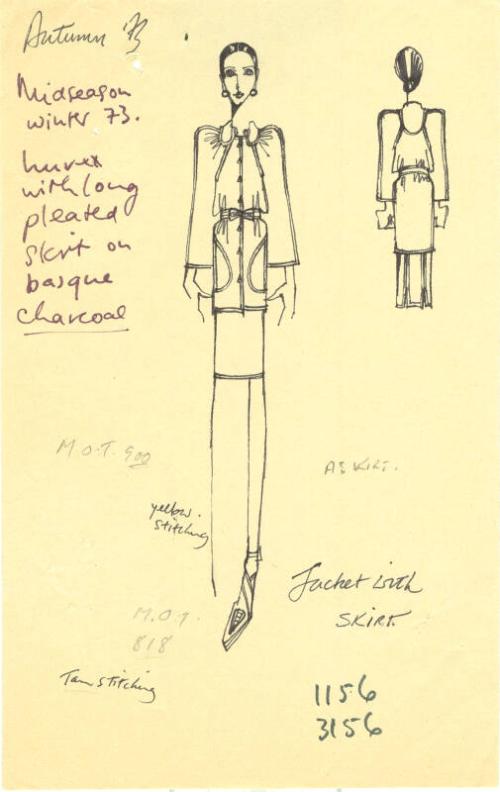 Autumn '73
Midseason
winter 73.
with long
pleated
skirt on
basque
charcoal
M.O.T. 900
A SKIRT.
yellow.
stitching
Jacket with
SKIRT.
M.O.T.
818
Tan stitching
1156
3156